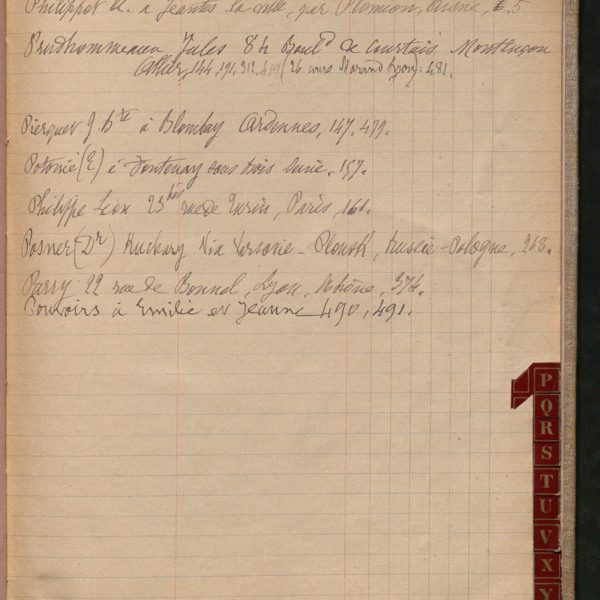 Philippot A. à Jeantes-la-ville, par Plomion, Aisne, 5
Prudhommeaux Jules 84 Boulᵈ de Courtais Montluçon
Allier, 144, 191, 312, 419 (26 cours Morand Lyon), 481.
Pierquet J. Bte à Blombay Ardennes, 147, 479.
Potonié (E) à Fontenay sous bois Seine, 157.
Philippe Léon 23 bis rue de Turin, Paris, 161.
Posner (Dr) Kuchary Via Varsovie - Plonsk, Russie-Pologne, 268.
Parry 22 rue de Bonnel, Lyon, Rhône, 374.
Pouvoirs à Emilie et Jeanne 490, 491.
P
Q
R
S
T
U
V
X
Y